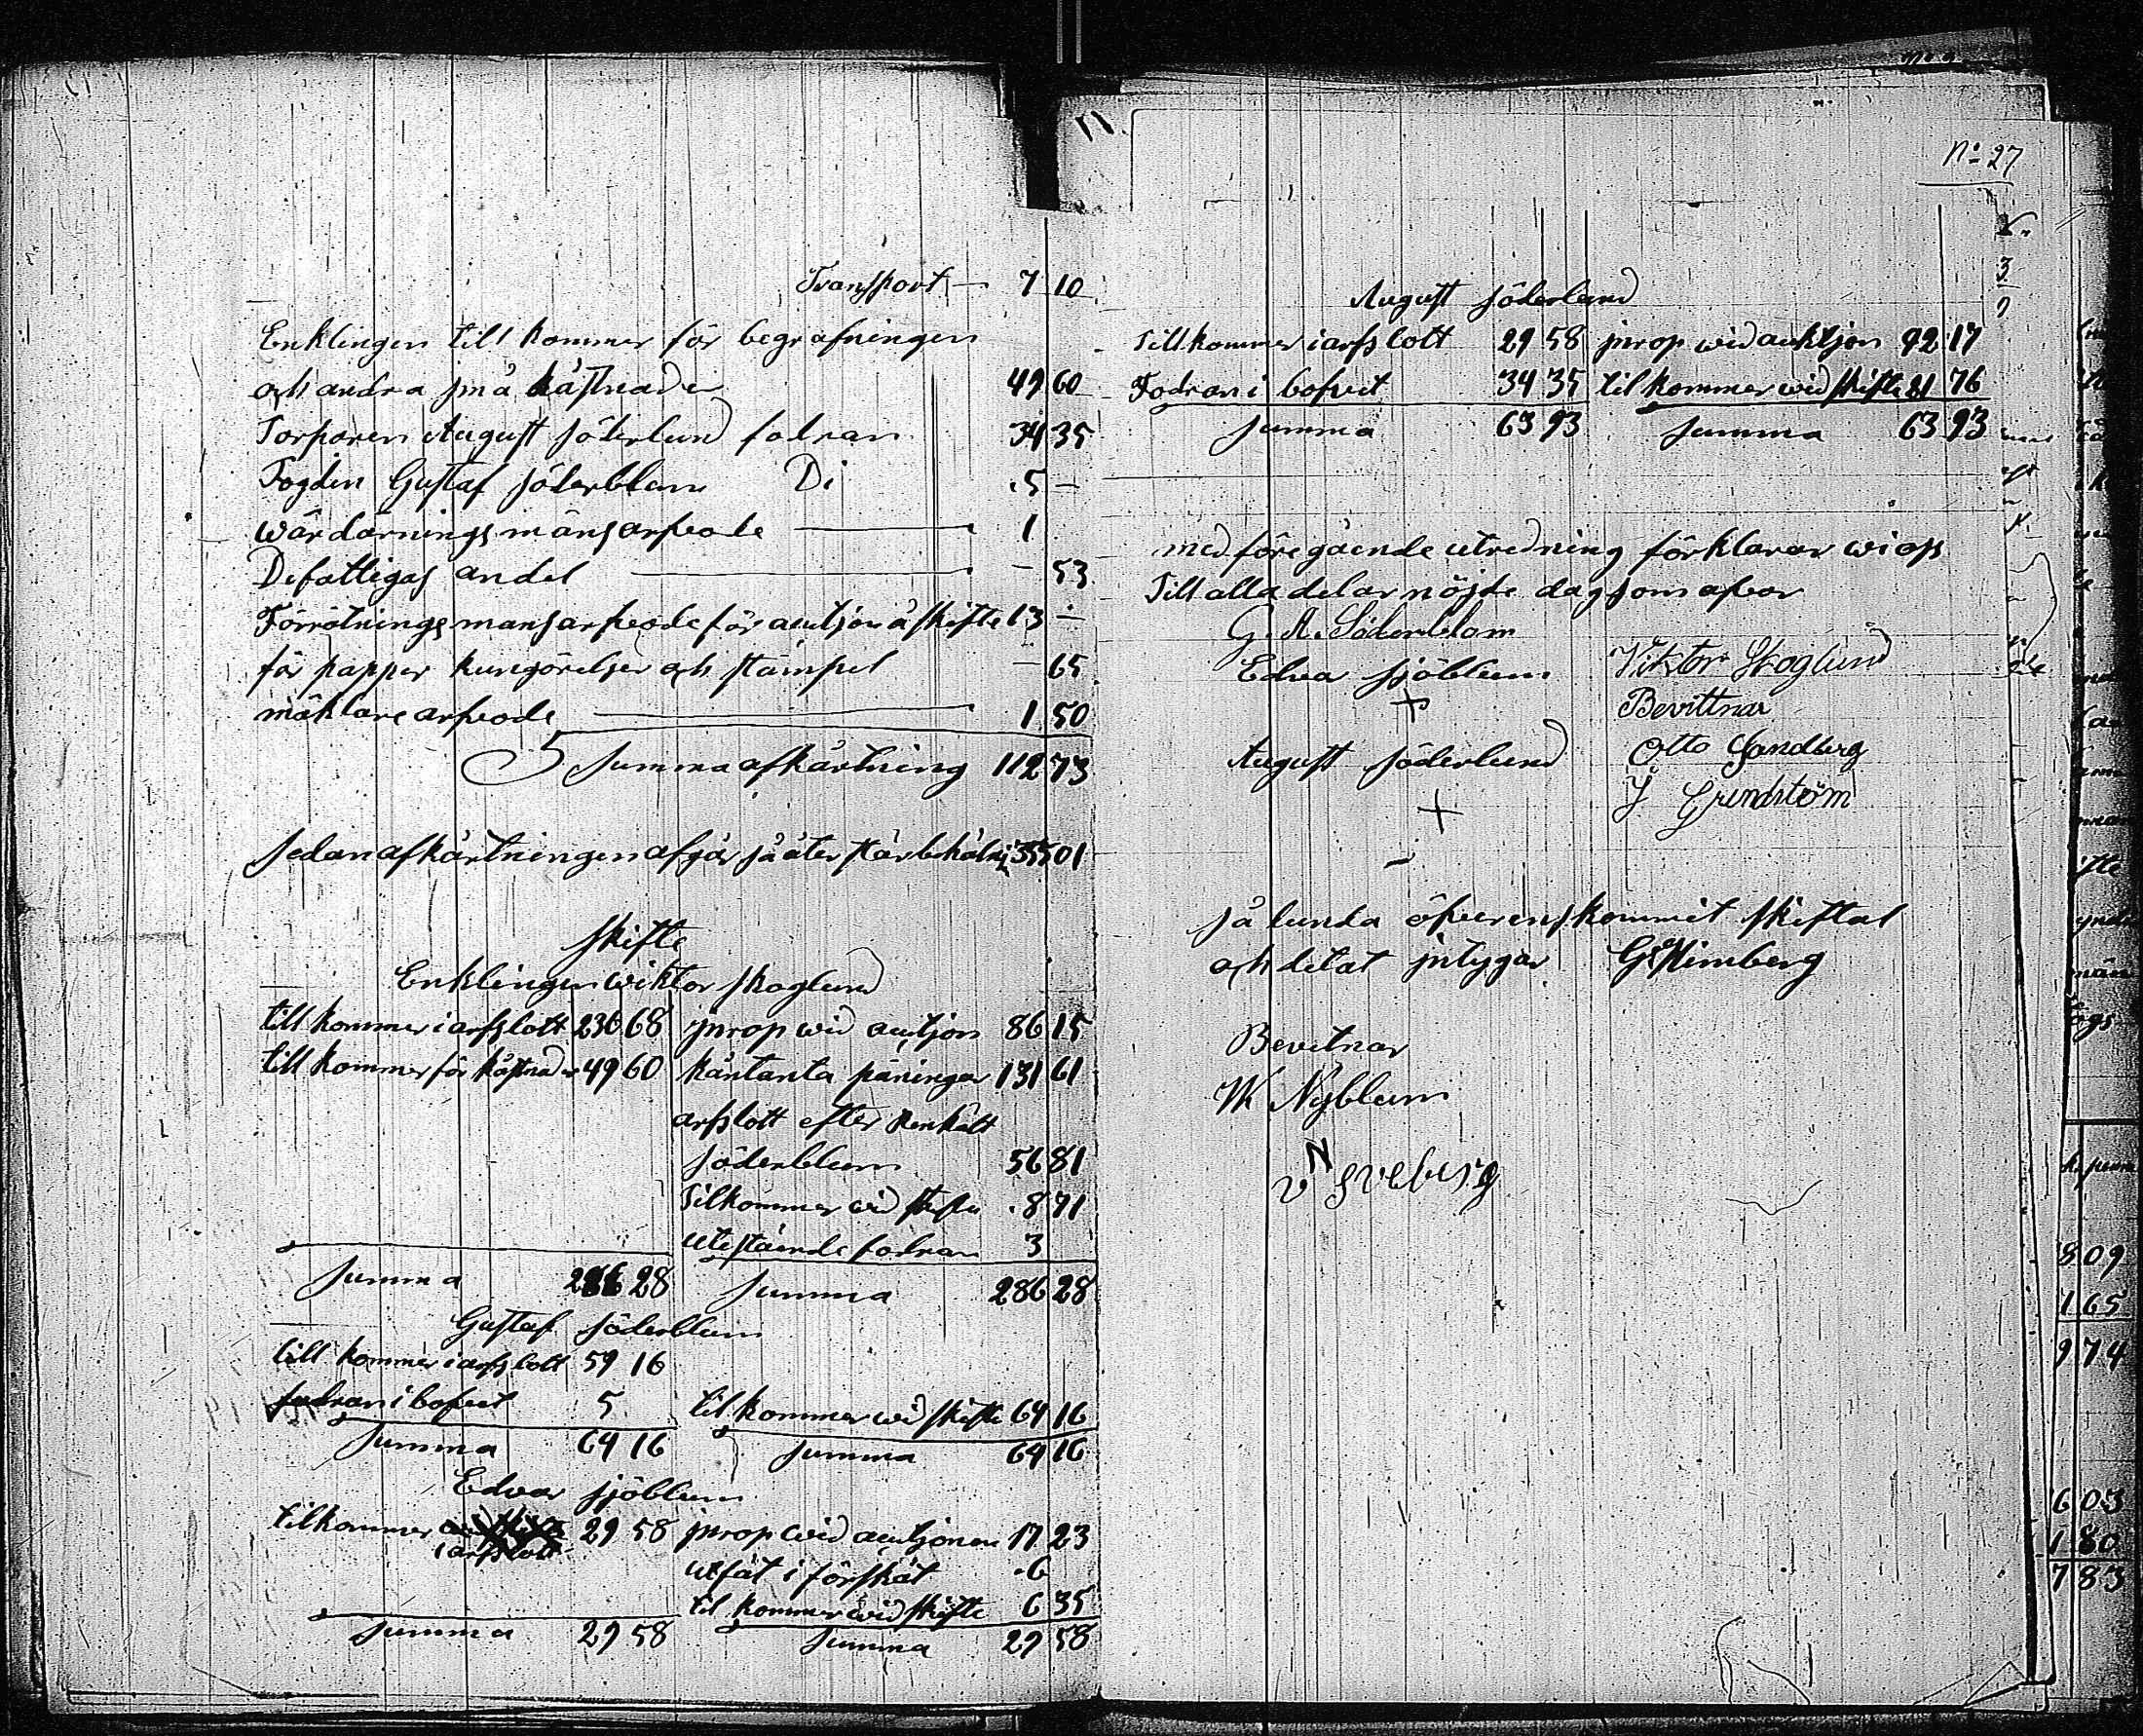 Transport — 7 10
Enklingen till kommer för begrafningen
och andra små kåstnader 49 60
Torparen August Söderlund fodran 34 35
Fogden Gustaf Söderblum Di 5 —
wärdärningsmänsarfvode — 1
Defattigas andel — 53
Förrätningsmansarfvode för autjon å skifte 13 —
för papper kungörelser och stämpel — 65
mäklare arfvode — 1 50
Summa afkårtning 112 73
Sedan afkårtningen afgår så åter står behåln 355 01
Skifte
Enklingen Wiktor Skoglund
till kommer i arfslott 236 68 jnrop wid autjon 86 15
till kommer för kåstnader 49 60 kåntanta päningar 131 61
arfslott efter
Söderblum 56 81
Tilkommer wid skifte 8 71
utestående fodran 3
Summa 286 28 Summa 286 28
Gustaf Söderblum
till kommer i arfslott 59 16
fodran i bofvet 5 til kommer wid skifte 64 16
Summa 64 16 Summa 64 16
Edvar Sjöblum
tilkommer i arfslott 29 58 jnrop wid autjonen 17 23
utfåt i förskåt 6
til kommer wid skifte 6 35
Summa 29 58 Summa 29 58
No 27
August Söderlund
Till kommer i arfslott 29 58 jnrop wid auktjon 42 17
Fodran i bofvet 34 35 til kommer wid skifte 21 76
Summa 63 93 Summa 63 93
med föregående utredning förklarar wi oss
Till alla delar nöjde dag som ofvan
G. A. Söderblom
Edva Sjöblum Viktor Skoglund
+ Bevittnar
August Söderlund Otto Sandberg
+ J Grundström
Så lunda öfverenskommit skiftat
och delat jntygar G Stimberg
Bevitnar
W Nyblum
809
165
974
603
180
783